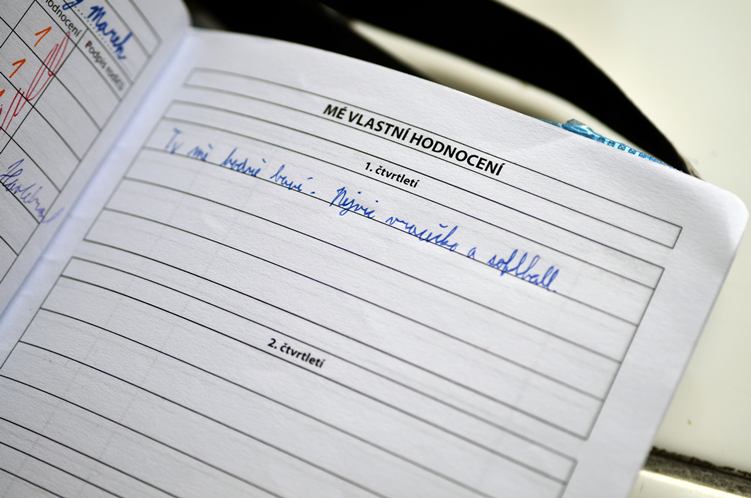 hodnocení
Podpis rodičů
Marek
1
1
1
MÉ VLASTNÍ HODNOCENÍ
1. čtvrtletí
Tv mě hodně baví. Nejvíc vracečka a softball.
2. čtvrtletí